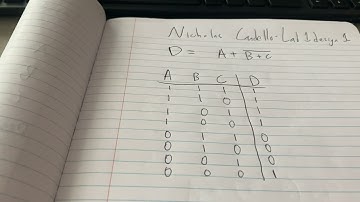 Nicholas - Lab 1 design 1
D = A + \overline{B+C}
A B C D
1 1 1 1
1 1 0 1
1 0 1 1
1 0 0 1
0 1 1 0
0 1 0 0
0 0 1 0
0 0 0 1